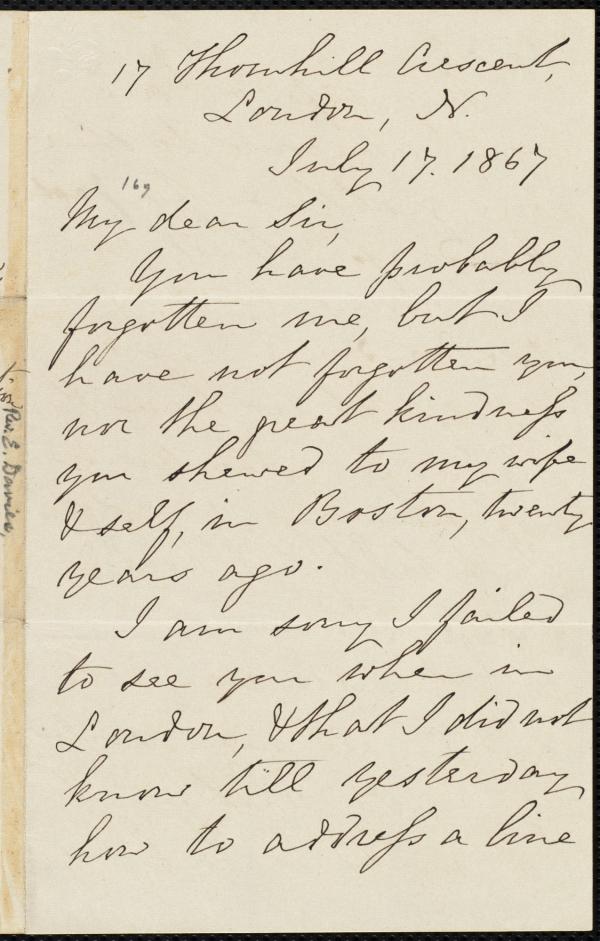 17 Thornhill Crescent,
London, N.
July 17. 1867
169
My dear Sir,
You have probably
forgotten me, but I
have not forgotten you,
nor the great kindness
you shewed to my wife
& self, in Boston, twenty
years ago.
I am sorry I failed
to see you when in
London, & that I did not
know till yesterday
how to address a line
Rev. E. Davies,